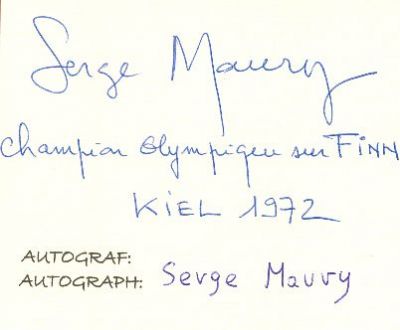 Serge Maury
Champion Olympique sur FiNN
KiEL 1972
AUTOGRAF:
AUTOGRAPH: Serge Maury